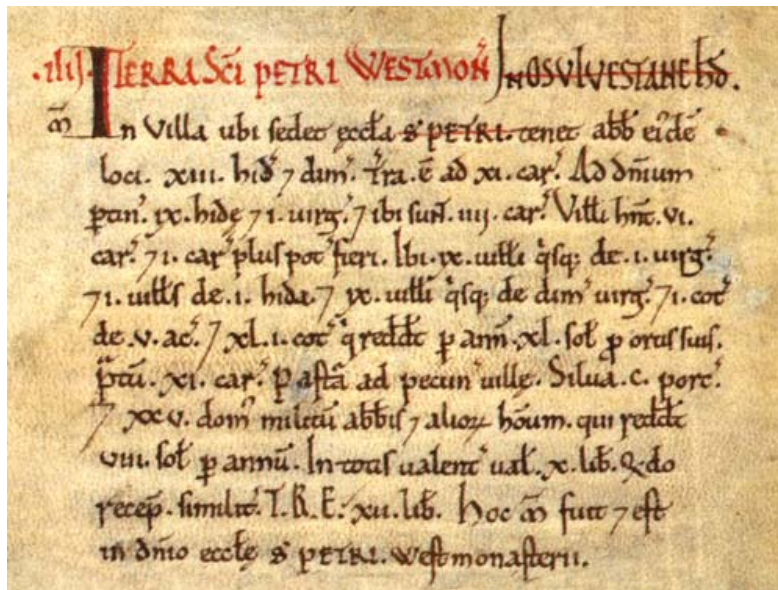 .IIII. TERRA SC̄I PETRI WESTMON̄ IN OSULVESTANE HĎ.
m̃ In Villa ubi sedet eccła S PETRI. tenet abb̄ ei'dē
loci. xiii. hid' ⁊ dim'. Tra. ē ad xi. car'. Ad dn̄ium
ptin'. ix. hidę ⁊ i. uirg'. ⁊ ibi sun̄t. iiij. car'. Vilłi hn̄t. vi.
car'. ⁊ i. car' plus pot' fieri. Ibi. ix. uilłi q̊sq; de. i. uirg'.
⁊ i. uilłs de. i. hida. ⁊ ix. uilłi q̊sq; de dim' uirg'. ⁊ i. cot'
de. v. ac'. ⁊ xL. i. cot' q̊ redd̄t p ann̄. xL. soł p ortis suis.
p̊tū. xi. car'. Pastā ad pecun' uillę. Silua. c. porc'.
⁊ xxv. dom' militū abb̄is ⁊ alioꝝ hōum. qui redd̄t
viii. soł p annū. In totis ualent' uał. x. lib̄. Q̨do
recep̄. similit'. T.R.E.' xii. lib̄. Hoc m̃ fuit ⁊ est
in dn̄io eccłę S PETRI. Westmonasterii.